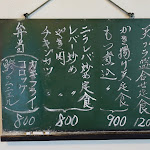 天ぷら盛合せ定食 1200
かき揚げ天定食 900
もつ煮込〃
ニラレバ炒め定食
レバー炒め〃
やき肉〃
チキンカツ〃 800
カキフライ
弁当 コロッケ 800